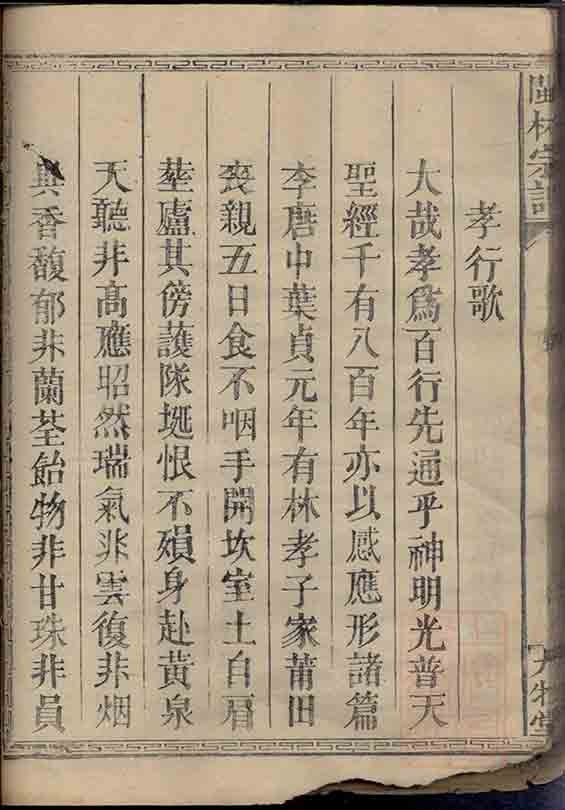 閩林宗譜
孝行歌
大哉孝爲百行先通乎神明光普天
聖經千有八百年亦以感應形諸篇
李唐中葉貞元年有林孝子家莆田
喪親五日食不咽手開坎室土自肩
塟廬其傍護隊埏恨不殞身赴黄泉
天聽非高應昭然瑞氣非雲復非烟
異香馥郁非蘭荃飴物非甘珠非員